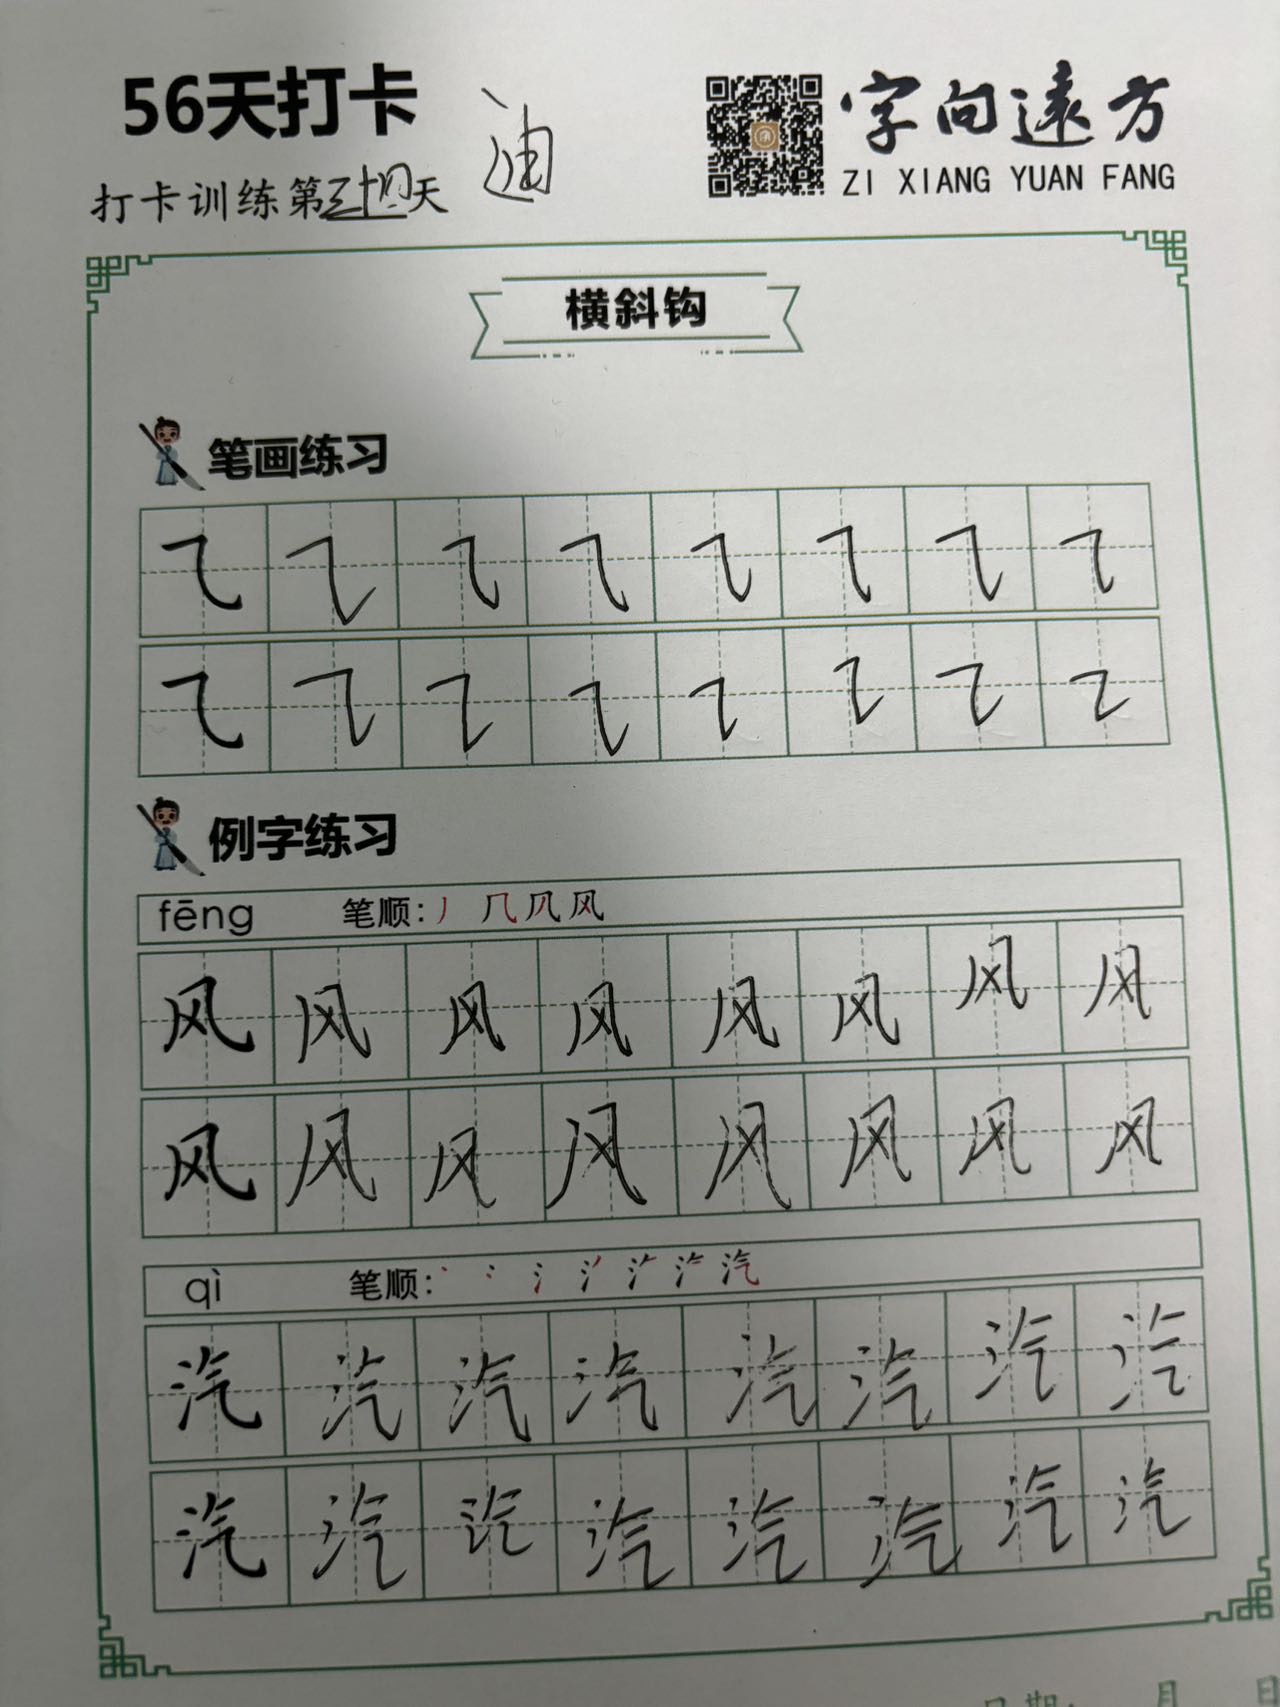 56天打卡
迪
字向遠方
ZI XIANG YUAN FANG
打卡训练第三十四天
横斜钩
笔画练习
㇈ ㇈ ㇈ ㇈ ㇈ ㇈ ㇈ ㇈
㇈ ㇈ ㇈ ㇈ ㇈ ㇈ ㇈ ㇈
例字练习
fēng 笔顺: 丿 几 风 风
风 风 风 风 风 风 风 风
风 风 风 风 风 风 风 风
qì 笔顺: 丶 冫 氵 汽
汽 汽 汽 汽 汽 汽 汽 汽
汽 汽 汽 汽 汽 汽 汽 汽
日期: 月 日